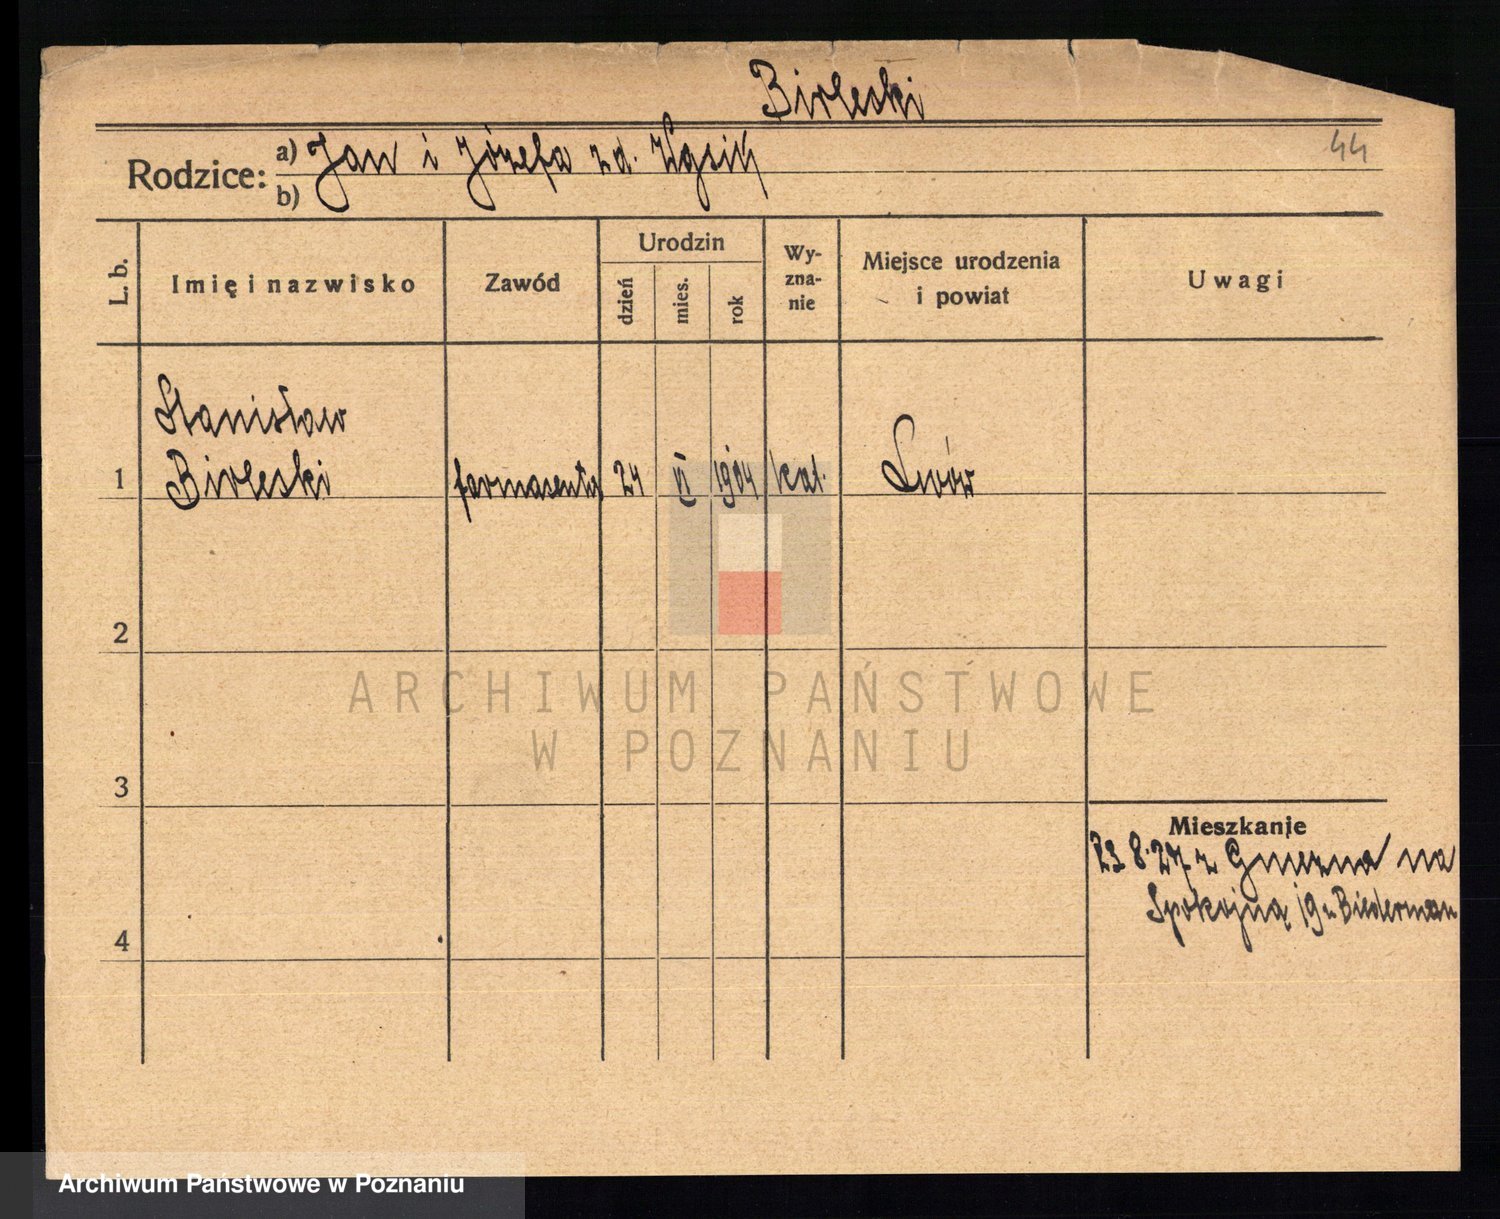 Birleski
44
Rodzice: a) Jan i Józefa zd.
b)
L. b.
Imię i nazwisko
Zawód
Urodzin
dzień
mies.
rok
Wy-
zna-
nie
Miejsce urodzenia
i powiat
Uwagi
Stanisław
1 Birleski farmaceuta 24 VI 1904 kat. Lwów
2
3
4
Mieszkanie
23 8. 27. z Gniezna na
Spokojną 19 u Biederman
ARCHIWUM PAŃSTWOWE
W POZNANIU
Archiwum Państwowe w Poznaniu